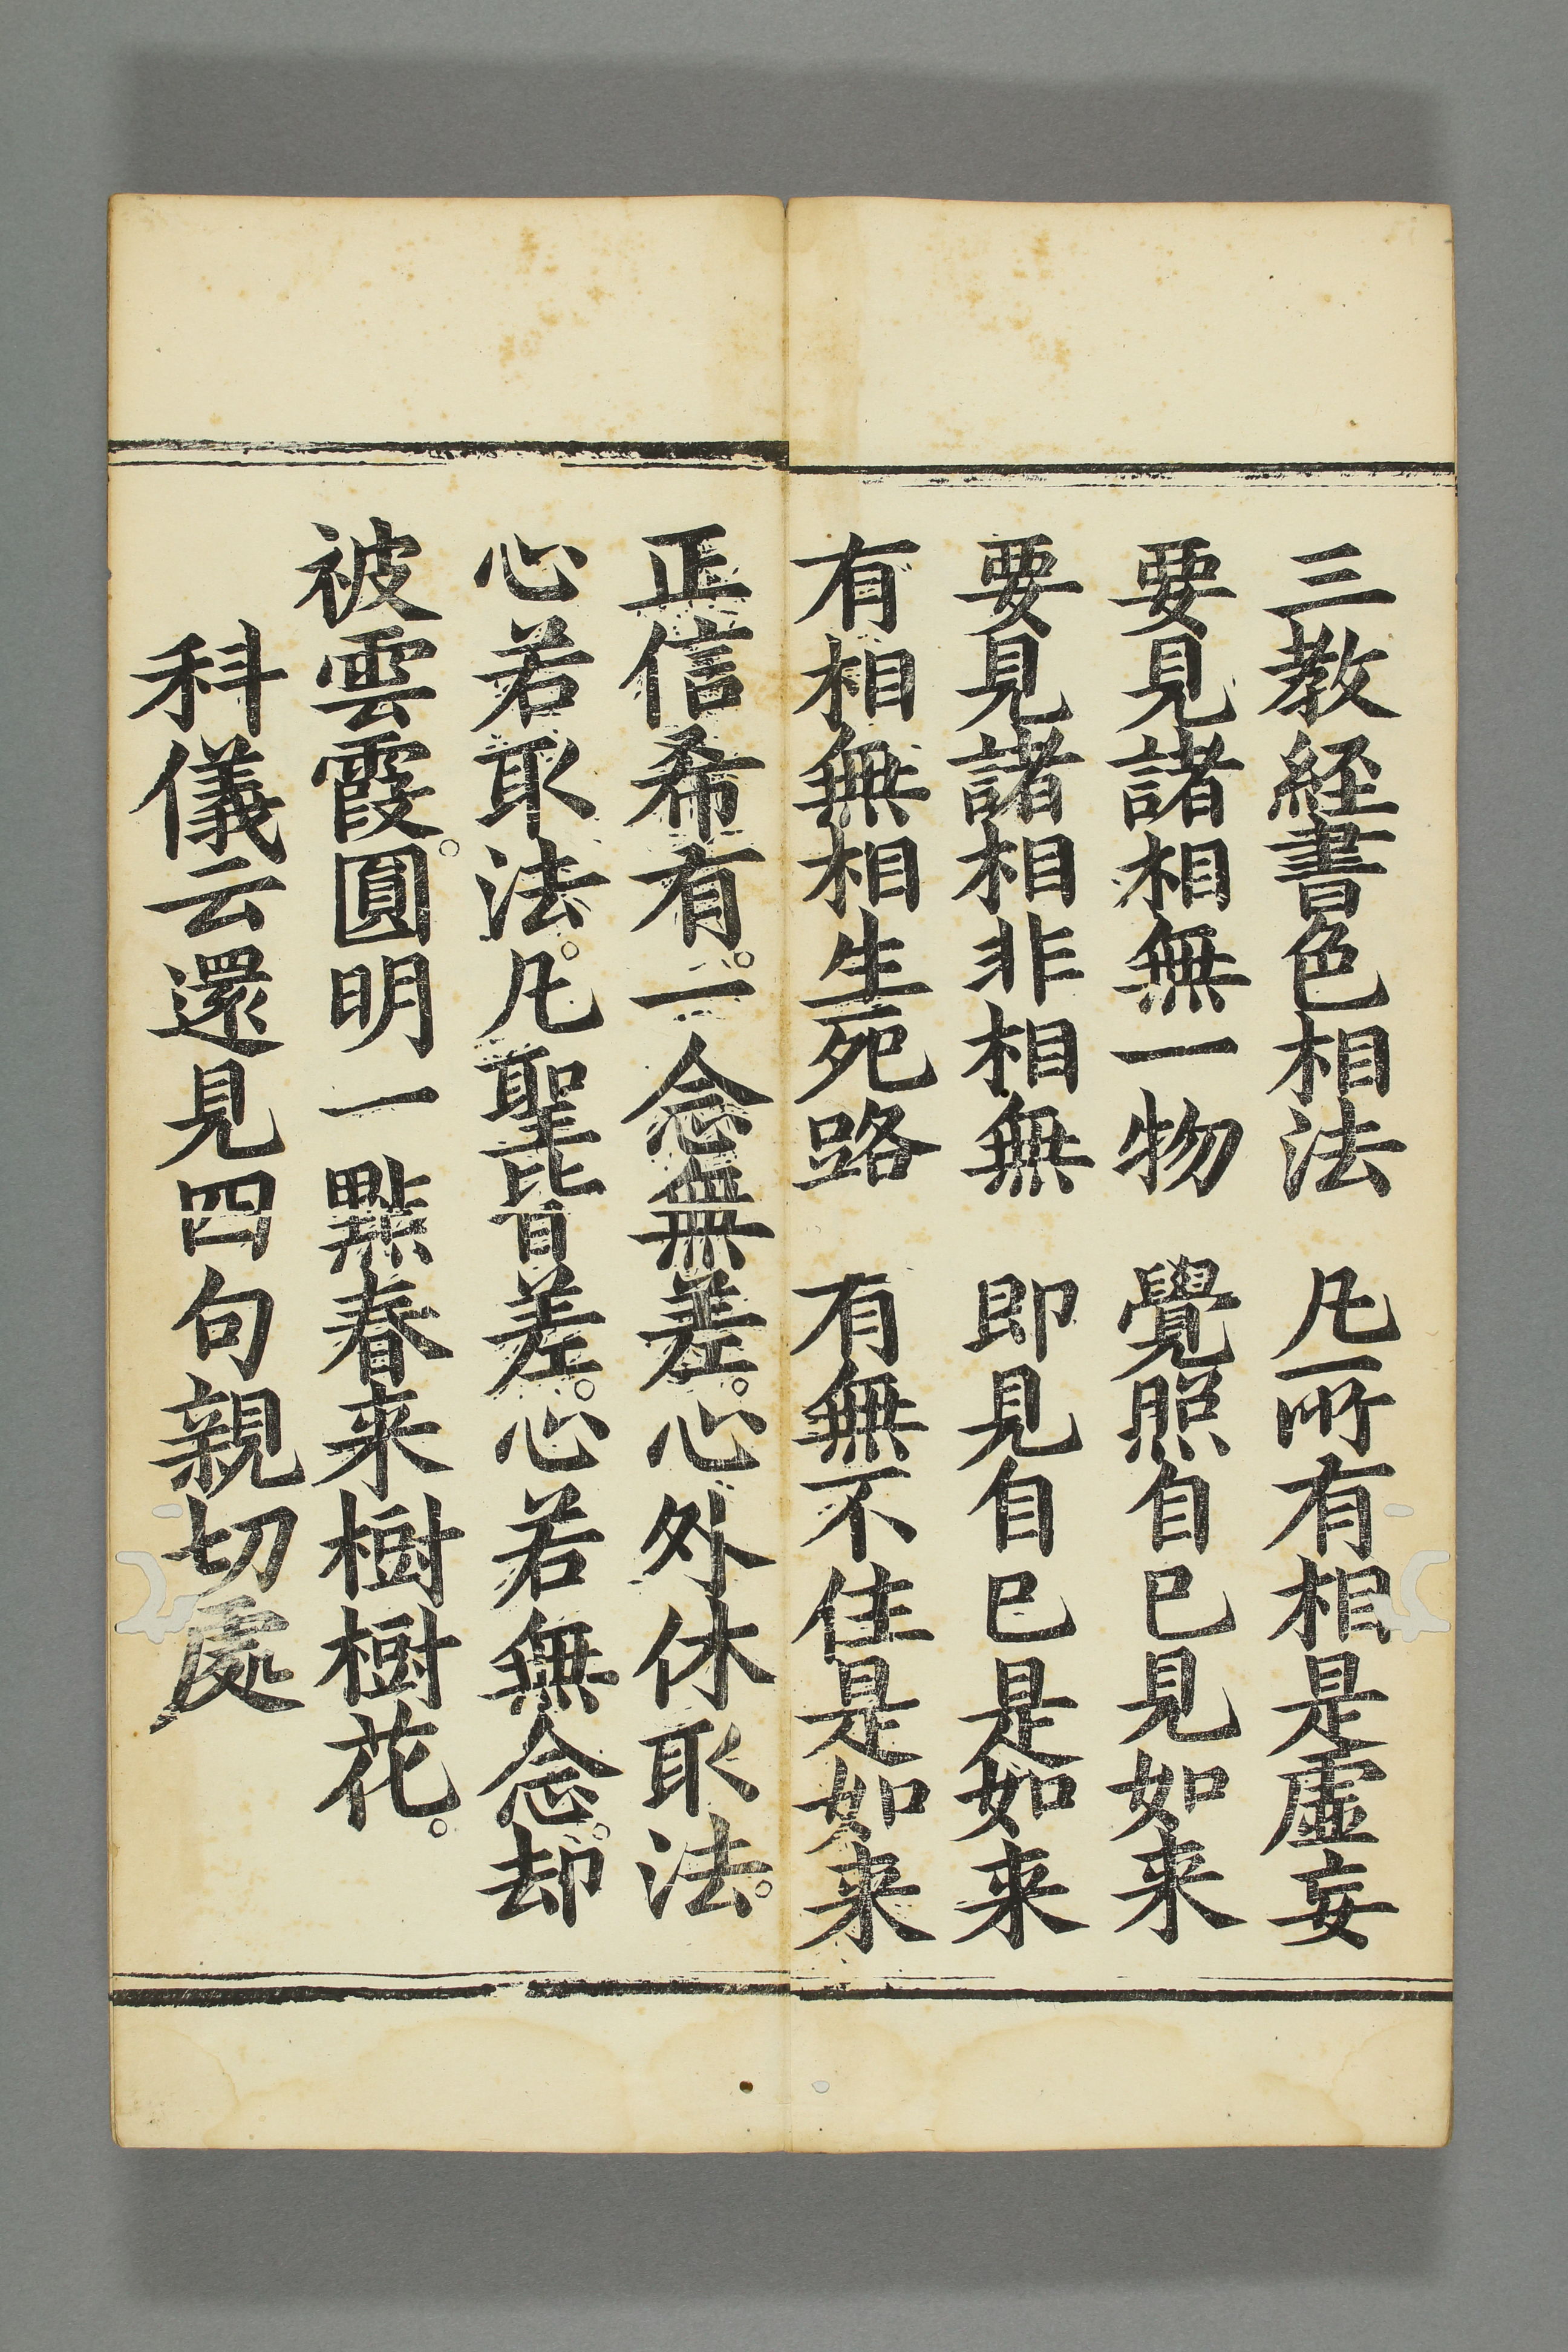 三教経書色相法　凡所有相是虛妄
要見諸相無一物　覺照自已見如来
要見諸相非相無　即見自已是如来
有相無相生死路　有無不住是如来
正信希有。一念無差。心外休取法。
心若取法。凡聖皆差。心若無念。却
被雲霞。圓明一點春来樹樹花。
科儀云還見四句親切處